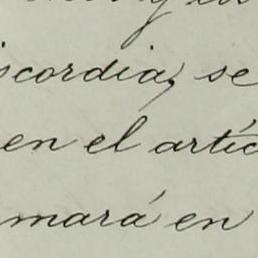 scordia, se
en el artíc
mará en